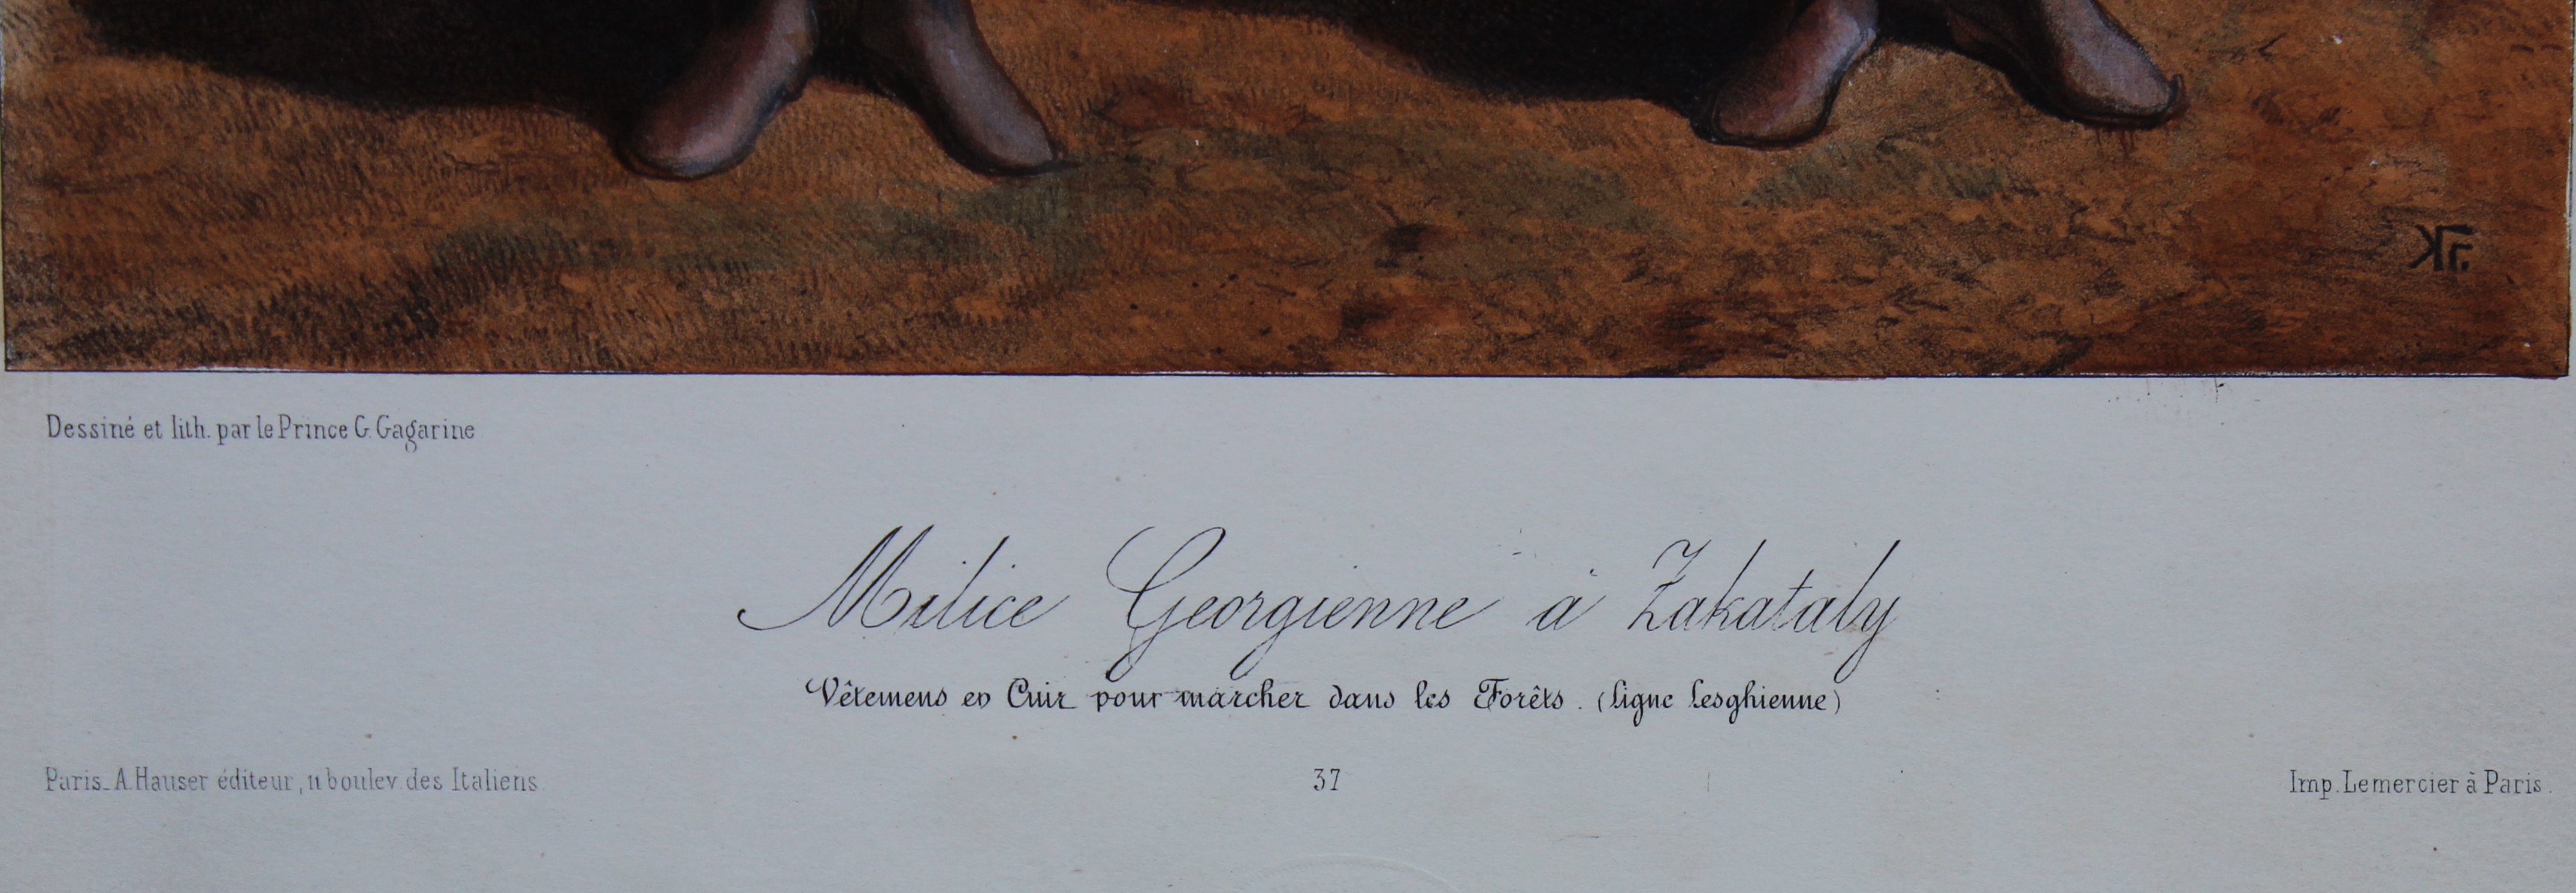 Dessiné et lith. par le Prince G. Gagarine
Milice Georgienne à Zakataly
Vêtemens en Cuir pour marcher dans les Forêts. (Ligne Lesghienne)
Paris_A. Hauser éditeur, 11 boulev. des Italiens
37
Imp. Lemercier à Paris.